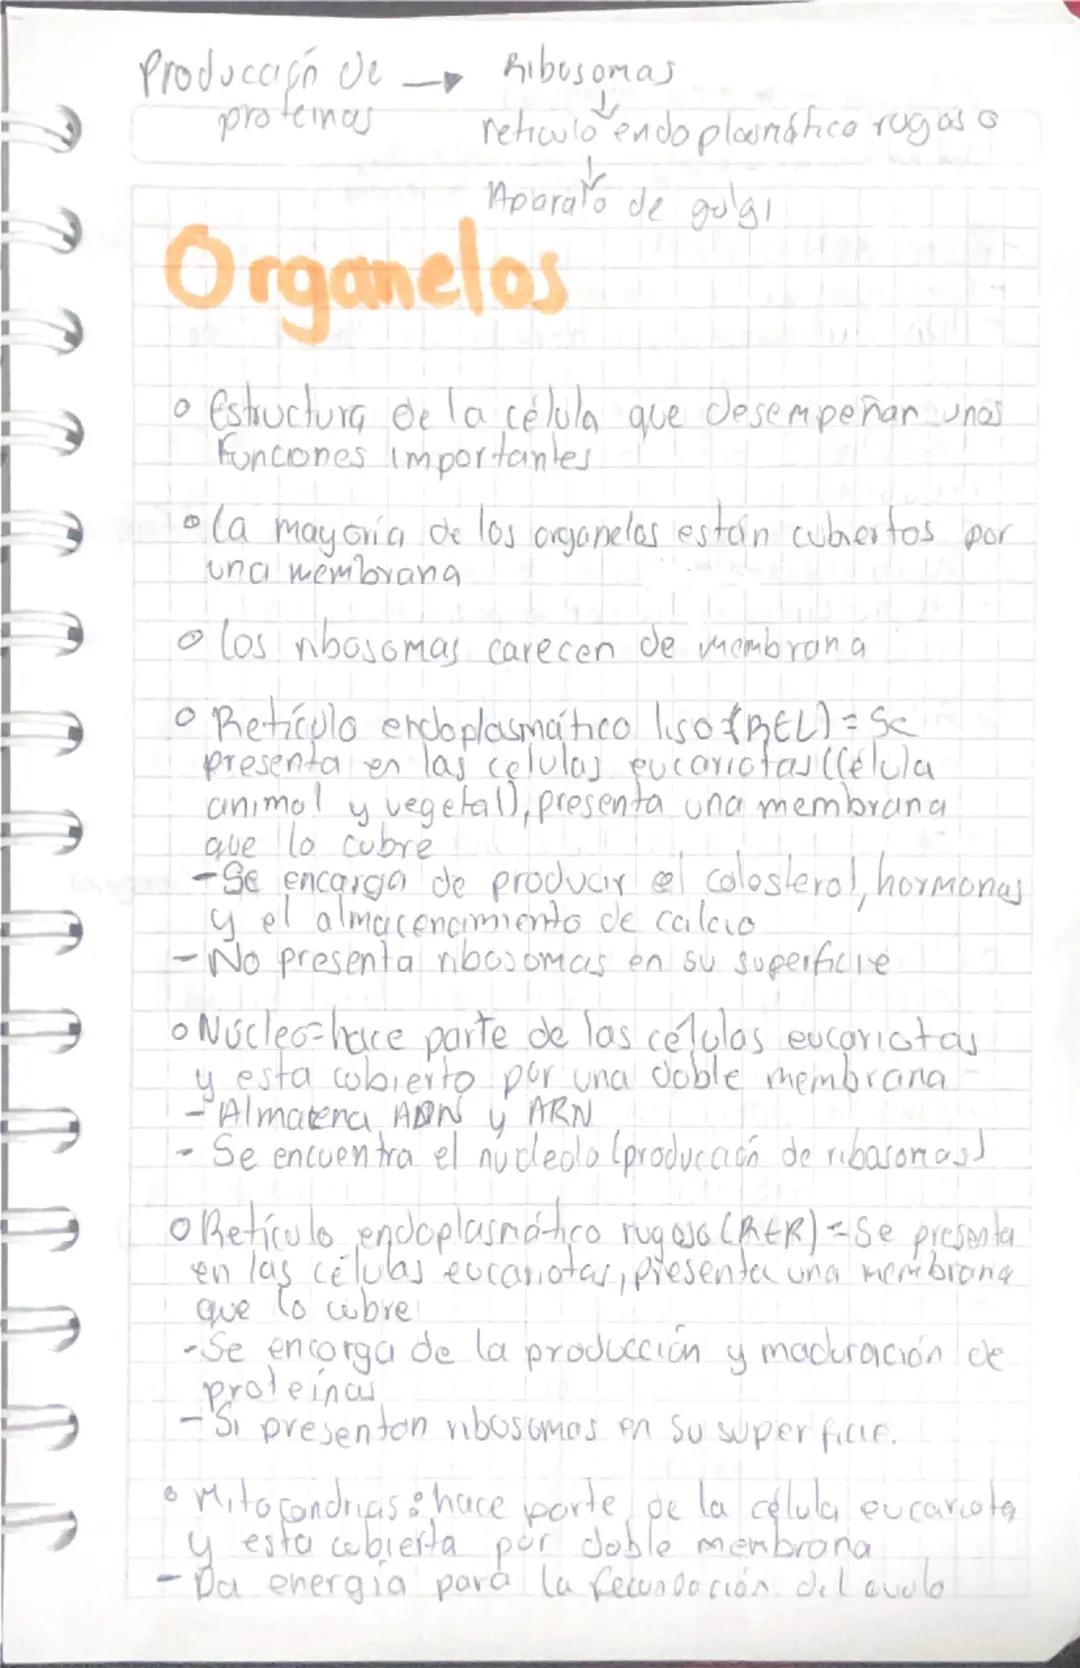 Producción de → Ribosomas
proteinas
↓
reticulo endoplasmático rugoso
↓
Aparato de golgi
Organelos
o Estructura de la célula que desempeñan unas
funciones importantes
o la mayoría de los organelos están cubiertos por
una membrana
o los ribosomas carecen de membrana
o Retículo endoplasmático liso (REL) = Se
presenta en las celulas eucariotas (Célula
animal y vegetal), presenta una membrana
que lo cubre
- Se encarga de producir el colosterol, hormonas
y el almacenamiento de calcio
- No presenta ribosomas en su superficie
o Núcleo = hace parte de las células eucariotas
y esta cubierto por una doble membrana
- Almacena ADN y ARN
- Se encuentra el nucleolo (producción de ribosomas)
o Retículo endoplasmático rugoso (RER) = Se presenta
en las células eucariotas, presenta una membrana
que lo cubre
- Se encarga de la producción y maduración de
proteínas
- Si presentan ribosomas en su superficie.
o Mitocondrias: hace parte de la célula eucariota
y esta cubierta por doble membrana
- Da energía para la fecundación del ovulo